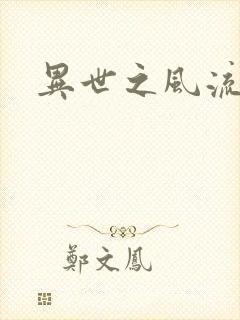 異世之風流
鄭文鳳